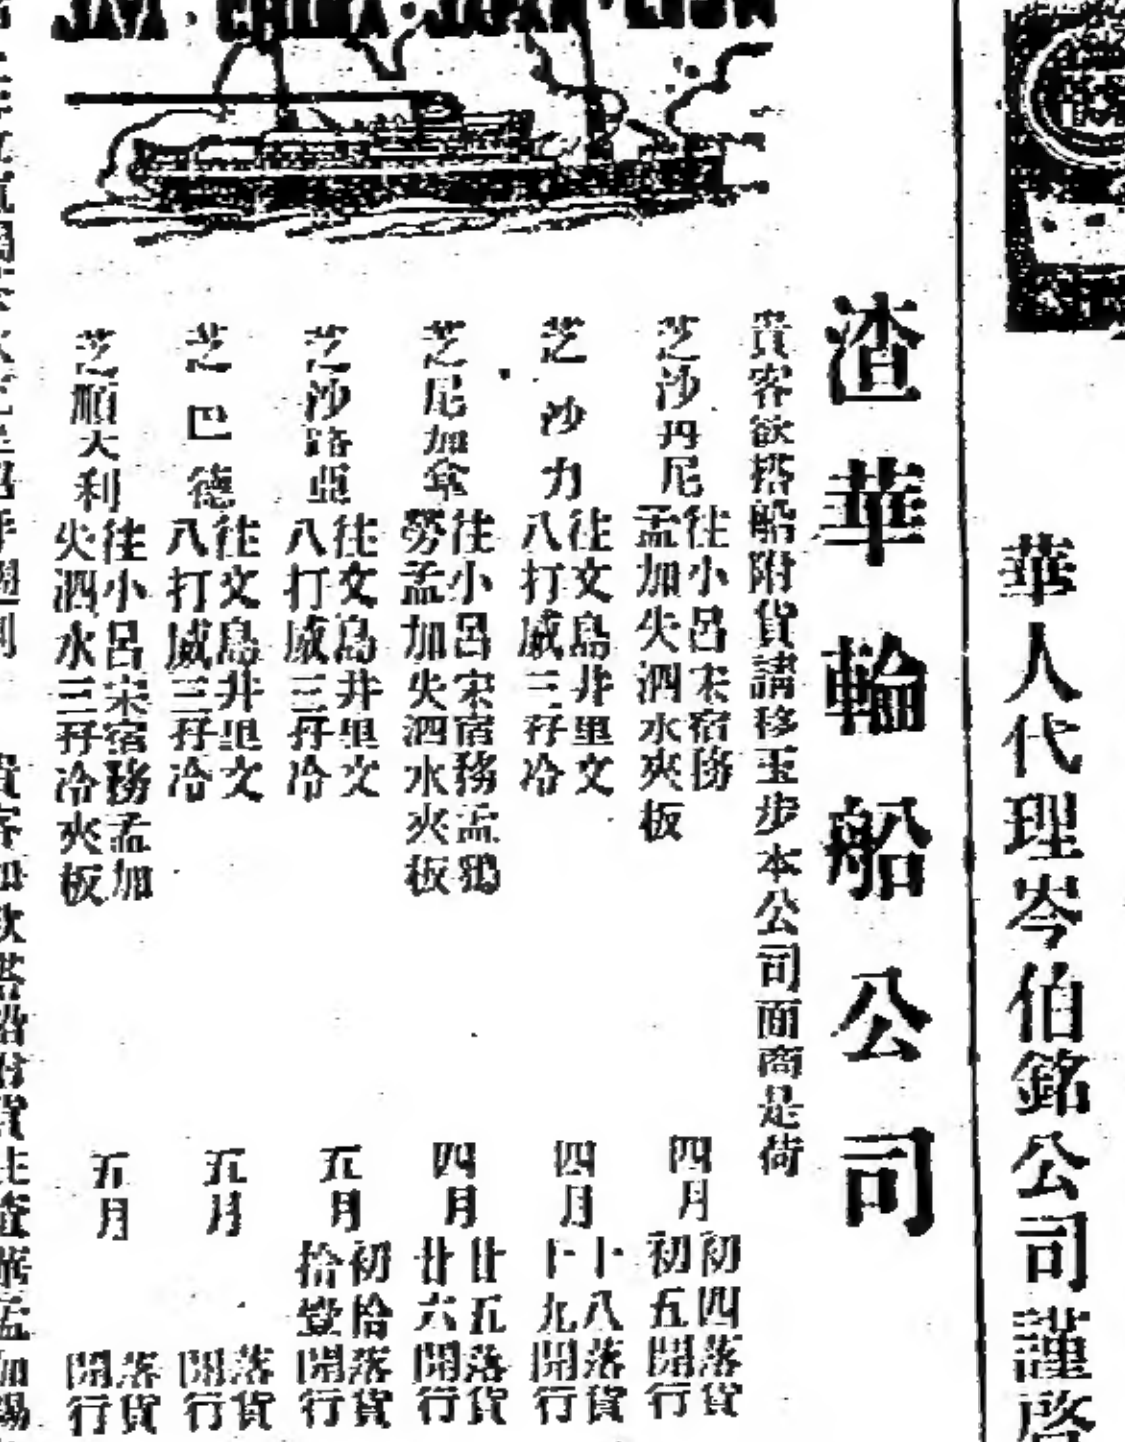 JAVA · CHINA · JAPAN
華人代理岑伯銘公司謹啓
渣華輪船公司
貴客欲搭船附貨請移玉步本公司面商是荷
芝沙丹尼 往小呂宋宿務孟加失泗水夾板 四月 初四落貨初五開行
芝沙力 往文島井里文八打威三孖冷 四月 十八落貨十九開行
芝尼加拿 往小呂宋宿務孟鴉勞孟加失泗水夾板 四月 廿五落貨廿六開行
芝沙路亞 往文島井里文八打威三孖冷 五月 初拾落貨拾壹開行
芝巴德 往文島井里文八打威三孖冷 五月 落貨開行
芝順大利 往小呂宋宿務孟加失泗水三孖冷夾板 五月 落貨開行